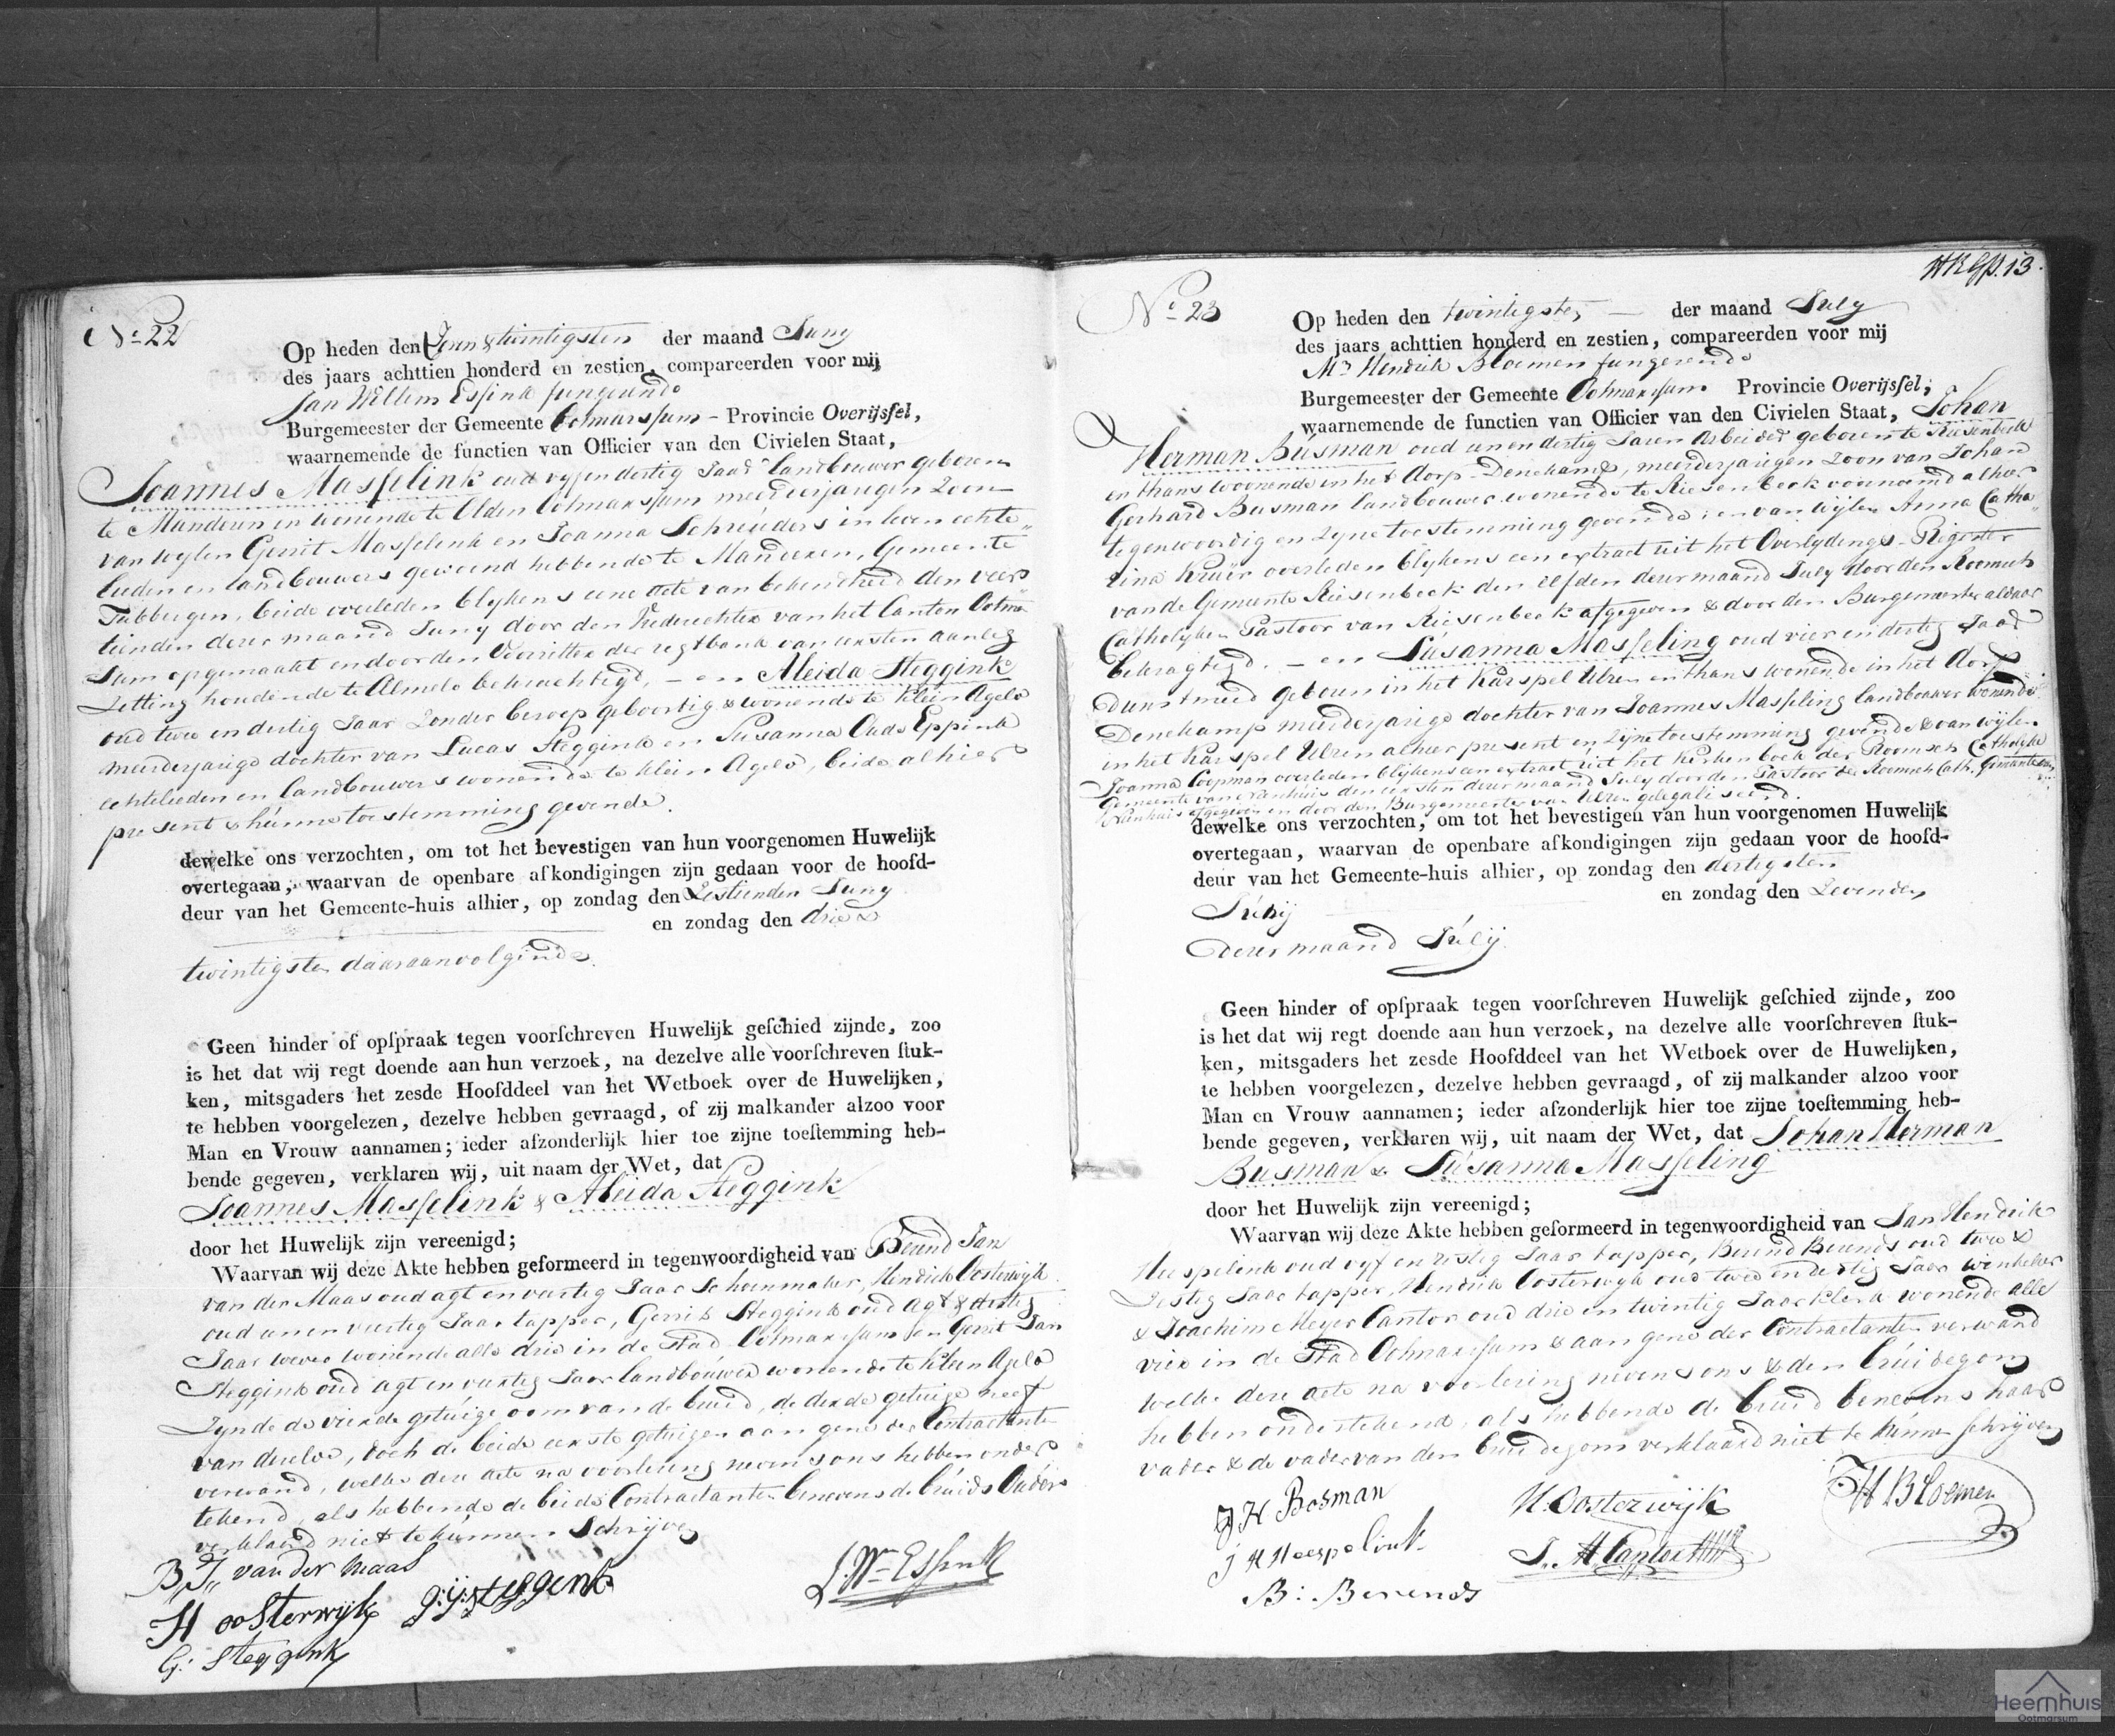 No 22
Op heden den Zeven & twintigsten der maand Juny
des jaars achttien honderd en zestien, compareerden voor mij
Jan Willem Essink fungerende
Burgemeester der Gemeente Ootmarssum - Provincie Overijssel,
waarnemende de functien van Officier van den Civielen Staat,
Joannes Masselink oud vyfendertig Jaar Landbouwer geboren
te Manderen en wonende te Olden Ootmarssum meerderjarigen Zoon
van wylen Gerrit Masselink en Joanna Schreuders in leven echte
lieden en landbouwers gewoond hebbende te Manderen, Gemeente
Tubbergen, beide overleden blykens eene acte van bekendheid den veer
tienden dezer maand Juny door den Vrederechter van het Canton Ootmar
sum opgemaakt en door den Voorzitter der regtbank van eersten aanleg
Zitting houdende te Almelo bekrachtigd, - en Aleida Steggink
oud twee en dertig Jaar Zonder beroep geboortig & wonende te Klein Agelo
meerderjarige dochter van Lucas Steggink en Susanna Oude Eppink
echtelieden en landbouwers wonende te Klein Agelo, beide alhier
present & hunne toestemming gevende.
dewelke ons verzochten, om tot het bevestigen van hun voorgenomen Huwelijk
overtegaan, waarvan de openbare afkondigingen zijn gedaan voor de hoofd-
deur van het Gemeente-huis alhier, op zondag den Zestienden Juny
en zondag den drie &
twintigsten daaraanvolgende.
Geen hinder of opspraak tegen voorschreven Huwelijk geschied zijnde, zoo
is het dat wij regt doende aan hun verzoek, na dezelve alle voorschreven stuk-
ken, mitsgaders het zesde Hoofddeel van het Wetboek over de Huwelijken,
te hebben voorgelezen, dezelve hebben gevraagd, of zij malkander alzoo voor
Man en Vrouw aannamen; ieder afzonderlijk hier toe zijne toestemming heb-
bende gegeven, verklaren wij, uit naam der Wet, dat
Joannes Masselink & Aleida Steggink
door het Huwelijk zijn vereenigd;
Waarvan wij deze Akte hebben geformeerd in tegenwoordigheid van Berend Jan
van der Maas oud agt en veertig Jaar Schoenmaker, Hendrik Oosterwijk
oud een en veertig Jaar tapper, Gerrit Steggink oud agt & dertig
Jaar wever wonende alle drie in de Stad Ootmarssum en Gerrit Jan
Steggink oud agt en veertig Jaar landbouwer wonende te Klein Agelo
Zynde de vierde getuige oom van de bruid, de derde getuige neef
van dezelve, doch de beide eerste getuigen aan gene der Contractanten
verwand, welke deze acte na voorlezing nevens ons hebben onder
tekend, als hebbende de beide Contractanten benevens de bruids Ouders
verklaard niet te kunnen Schrijven
B,J,, van der Maas
H oosterwijk
G: J: Steggink
G: Steggink
J. Wm Essink
HKGp. 13.
No 23
Op heden den twintigsten - der maand July
des jaars achttien honderd en zestien, compareerden voor mij
Mr Hendrik Bloemen fungerende
Burgemeester der Gemeente Ootmarssum Provincie Overijssel,
waarnemende de functien van Officier van den Civielen Staat, Johan
Herman Busman oud een en dertig Jaren Arbeider geboren te Riesenbeck
en thans woonende in het dorp Denekamp, meerderjarigen Zoon van Johan
Gerhard Busman landbouwer wonende te Riesenbeck voornoemd alhier
tegenwoordig en zyne toestemming gevende; en van wylen Anna Catha
rina Kruër overleden blykens een extract uit het Overlydings-Register
van de Gemeente Riesenbeck den elfden dezer maand July door den Roomsch
Catholyken Pastoor van Riesenbeck afgegeven & door den Burgemeester aldaar
bekragtigd. - en Susanna Masseling oud vier en dertig Jaar
Dienstmeid geboren in het Karspel Ulzen en thans wonende in het dorp
Denekamp meerderjarige dochter van Joannes Masseling landbouwer wonende
in het Karspel Ulzen alhier present en zijne toestemming gevende & van wylen
Joanna Coopman overleden blykens een extract uit het Kerkenboek der Roomsch Catholyke
Gemeente van Vranhuis den eersten dezer maand July door den Pastoor der Roomsch Cath. Gemeente van
Vranhuis afgegeven en door den Burgemeester van Ulzen gelegaliseerd.
dewelke ons verzochten, om tot het bevestigen van hun voorgenomen Huwelijk
overtegaan, waarvan de openbare afkondigingen zijn gedaan voor de hoofd-
deur van het Gemeente-huis alhier, op zondag den dertigsten
en zondag den Zevenden
dezer maand Julij.
Geen hinder of opspraak tegen voorschreven Huwelijk geschied zijnde, zoo
is het dat wij regt doende aan hun verzoek, na dezelve alle voorschreven stuk-
ken, mitsgaders het zesde Hoofddeel van het Wetboek over de Huwelijken,
te hebben voorgelezen, dezelve hebben gevraagd, of zij malkander alzoo voor
Man en Vrouw aannamen; ieder afzonderlijk hier toe zijne toestemming heb-
bende gegeven, verklaren wij, uit naam der Wet, dat Johan Herman
Busman & Susanna Masseling
door het Huwelijk zijn vereenigd;
Waarvan wij deze Akte hebben geformeerd in tegenwoordigheid van Jan Hendrik
Heespelink oud vyf en zestig Jaar tapper, Berend Berends oud twee &
Zestig Jaar tapper, Hendrik Oosterwyk oud twee en dertig Jaar winkelier
& Joachim Meyer Cantor oud drie en twintig Jaar klerk wonende alle
vier in de Stad Ootmarssum & aan gene der Contractanten verwand
welke deze acte na voorlezing nevens ons & den bruidegom
hebben ondertekend, als hebbende de bruid benevens haar
vader & de vader van den bruidegom verklaard niet te kunnen schrijven
J H Bosman
H. Oosterwijk
H Bloemen
J H Heespelink
J. M Cantor
B: Berends
Heernhuis
Ootmarsum